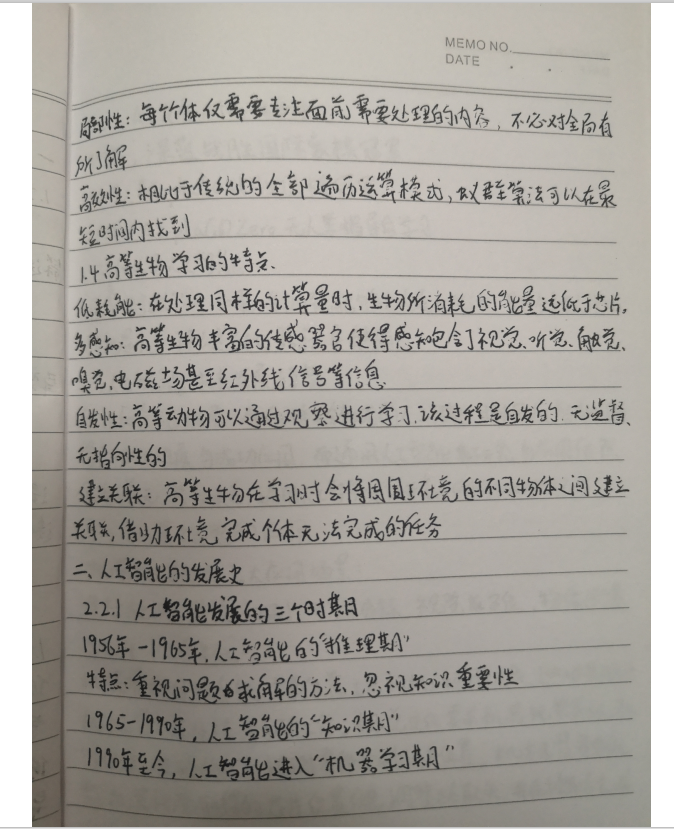 MEMO NO.
DATE . .
局部性：每个体仅需要专注面前需要处理的内容，不必对全局有
所了解
高效性：相比于传统的全部遍历运算模式，蚁群算法可以在最
短时间内找到
1.4 高等生物学习的特点、
低耗能：在处理同样的计算量时，生物所消耗的能量远低于芯片。
多感知：高等生物丰富的传感器官使得感知包含了视觉、听觉、触觉、
嗅觉、电磁场甚至红外线信号等信息
自发性：高等动物可以通过观察进行学习，该过程是自发的、无监督、
无指向性的
建立关联：高等生物在学习时会将周围环境的不同物体之间建立
关联，借助环境完成个体无法完成的任务
二、人工智能的发展史
2.2.1 人工智能发展的三个时期
1956年-1965年，人工智能的“推理期”
特点：重视问题求解的方法，忽视知识重要性
1965-1990年，人工智能的“知识期”
1990年至今，人工智能进入“机器学习期”